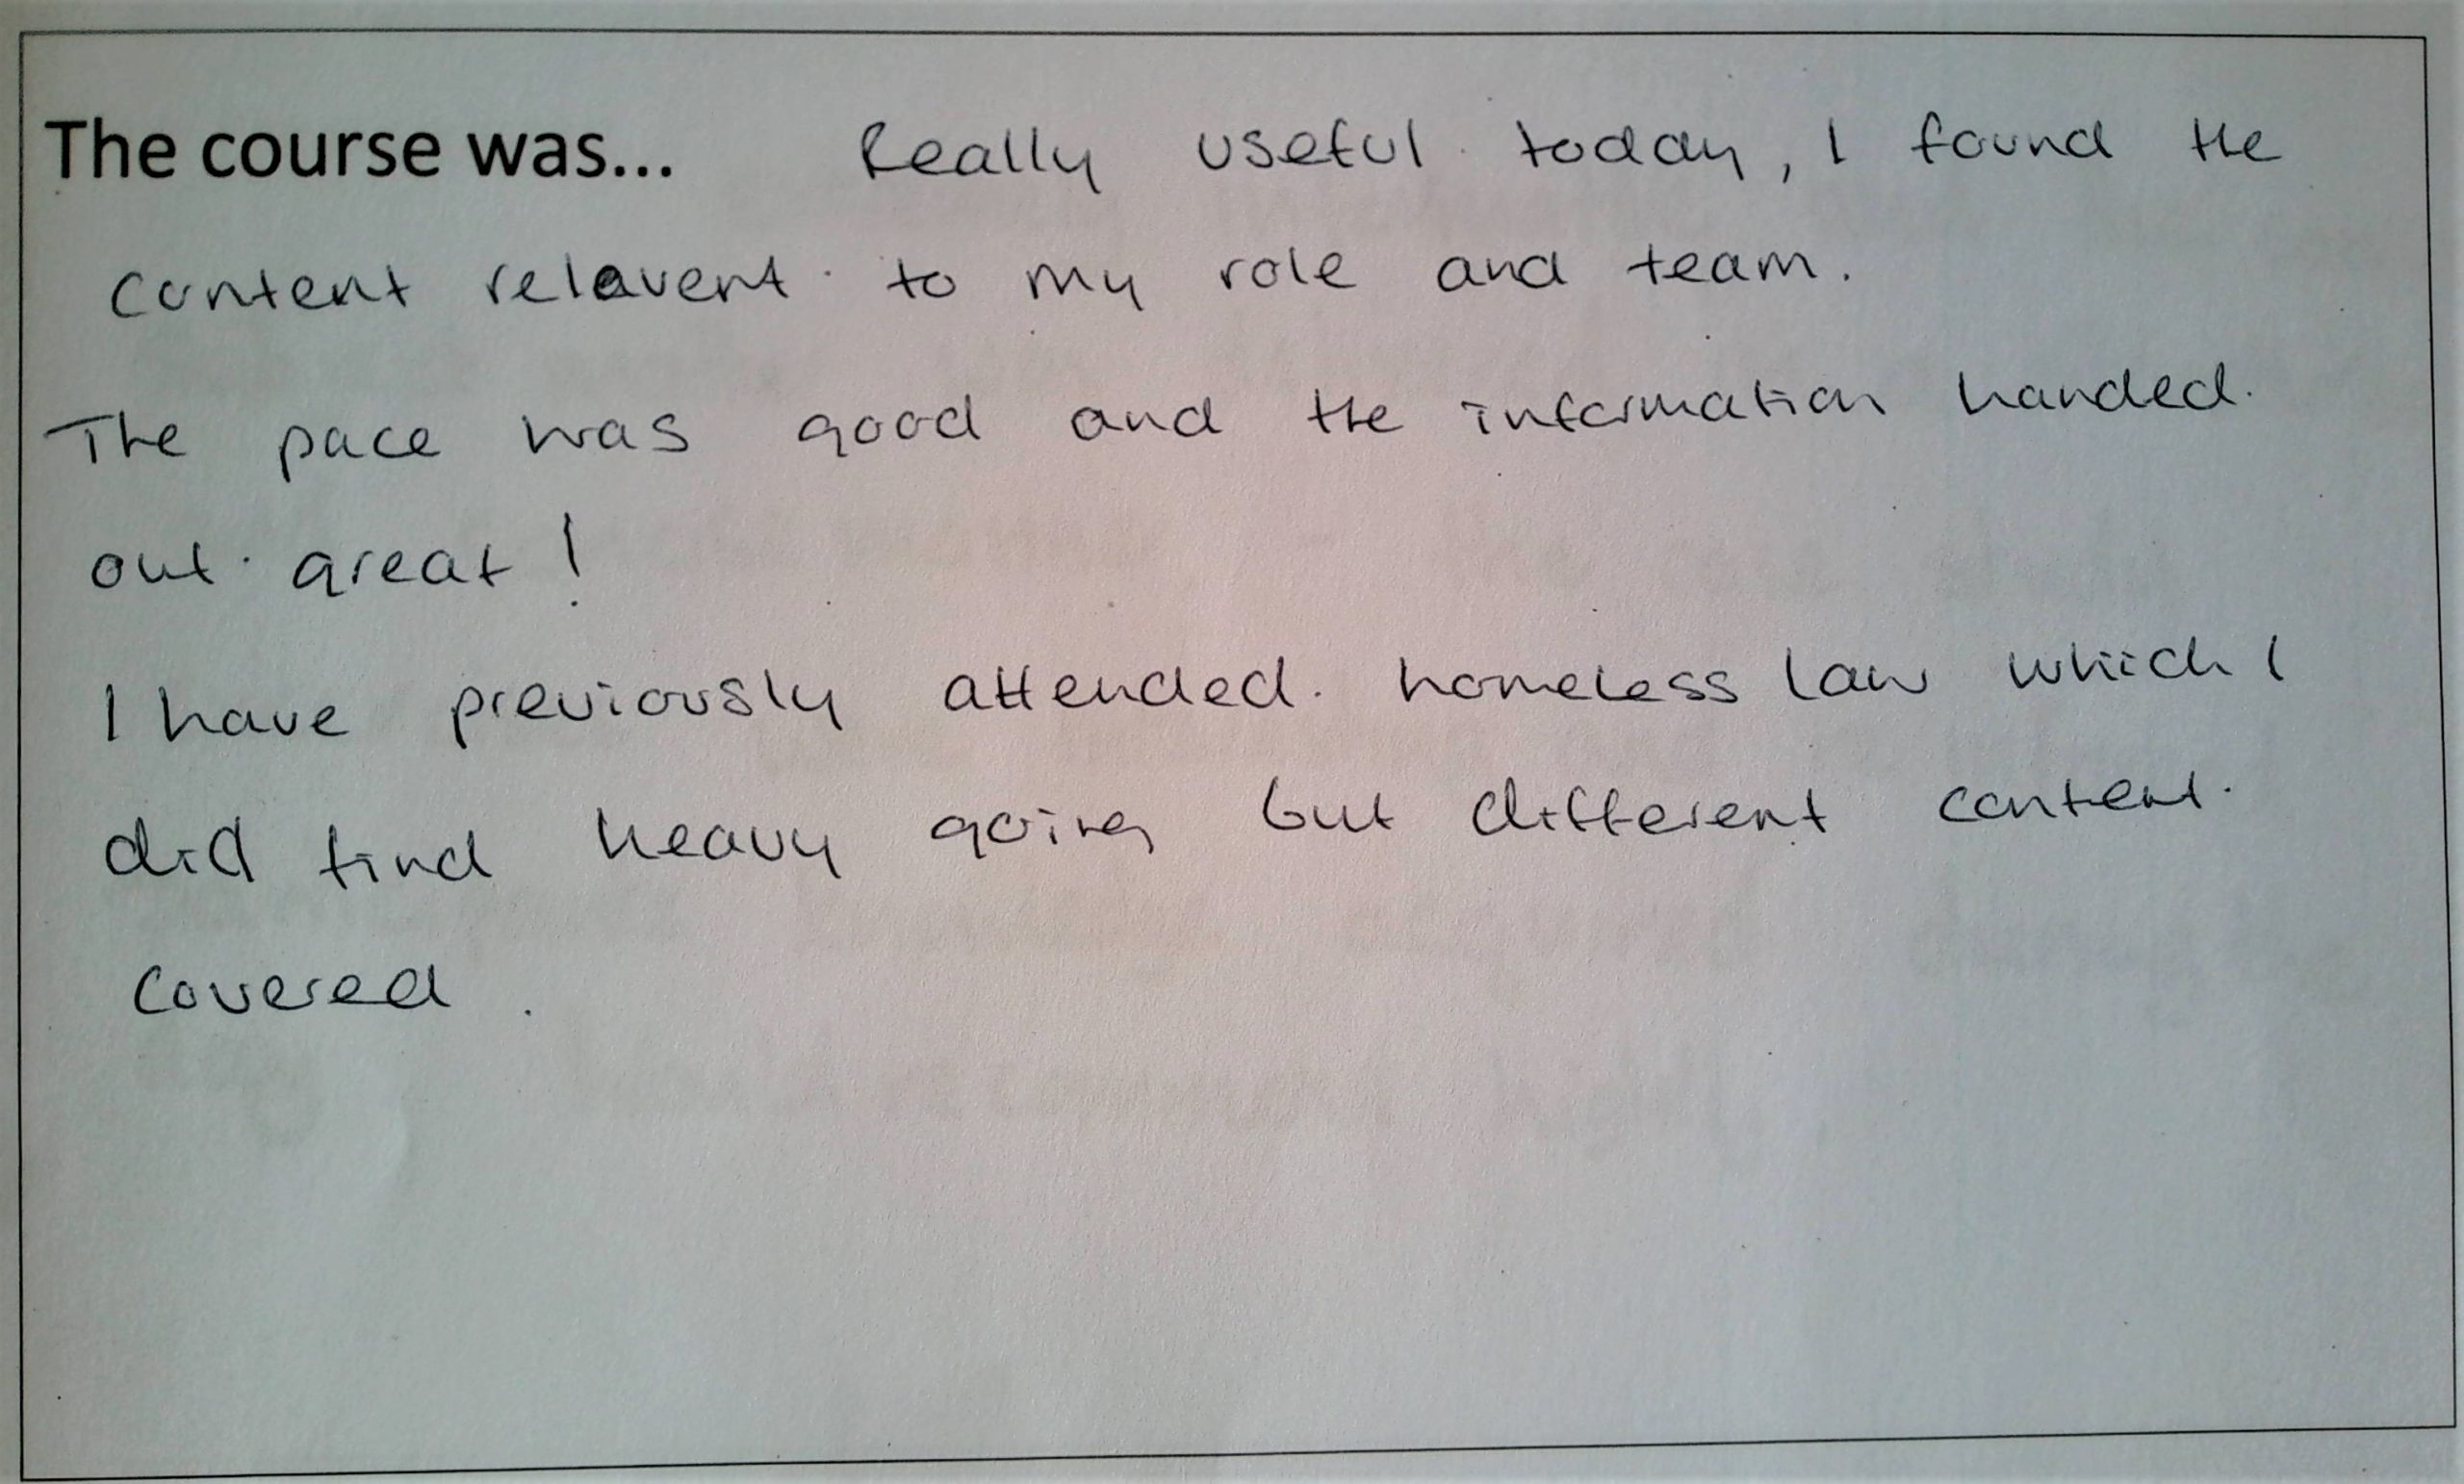 The course was... Really useful today, I found the
content relavent to my role and team.
The pace was good and the information handed
out great!
I have previously attended homeless law which I
did find heavy going but different content
covered.